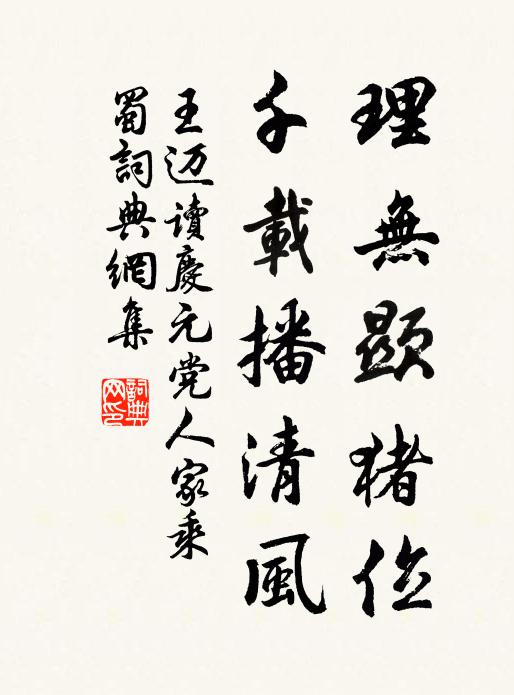 理無顯猪
千載播清風
王迈讀慶元党人家乘
蜀詞典網集
詞典
网印